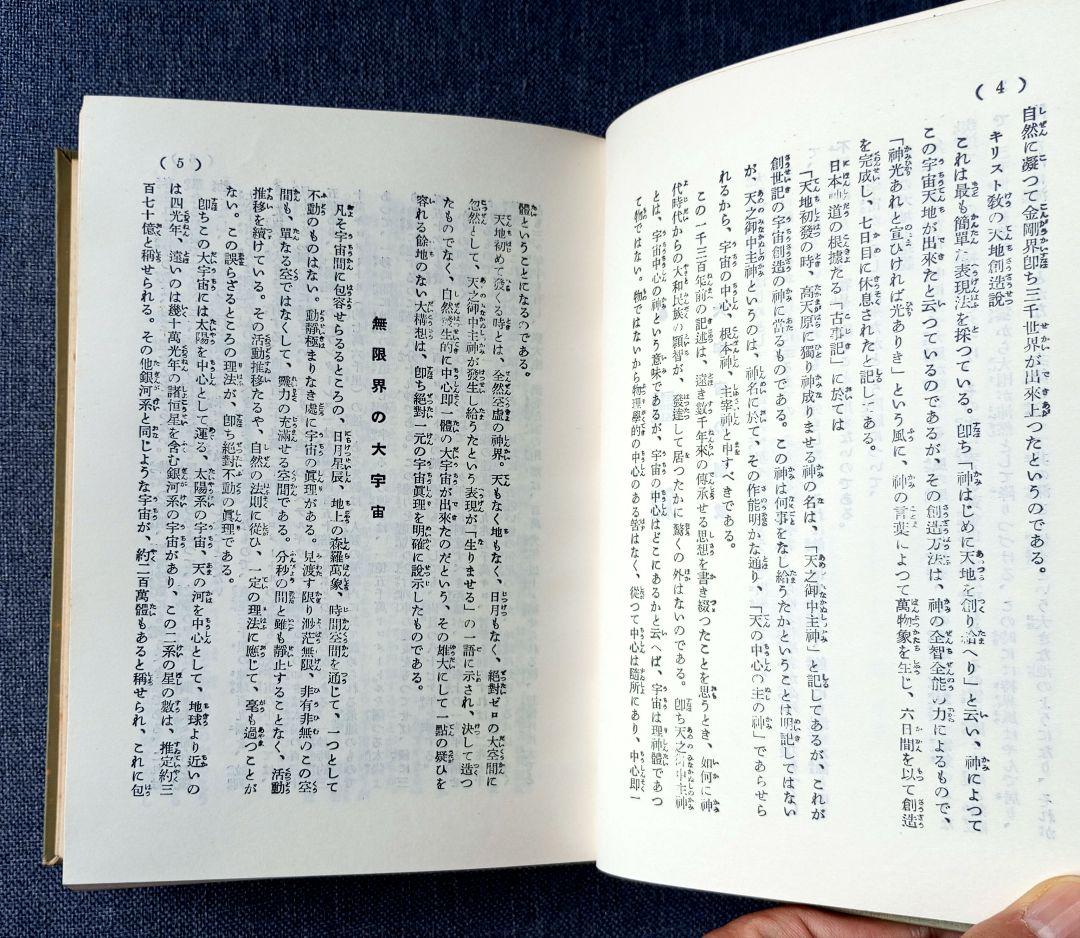 (4)
自然に凝つて金剛界卽ち三千世界が出來上つたというのである。
キリスト敎の天地創造說
これは最も簡單な表現法を採つている。卽ち「神はじめに天地を創り給へり」と云い、神によつて
この宇宙天地が出來たと云つているのであるが、その創造方法は、神の全智全能の力によるもので、
「神光あれと宣ひければ光ありき」という風に、神の言葉によつて萬物象を生じ、六日間を以て創造
を完成し、七日目に休息されたと記してある。
日本神道の根據たる「古事記」に於ては
「天地初發の時、高天原に獨り神成りませる神の名は、「天之御中主神」と記してあるが、これが
創世記の宇宙創造の神に當るものである。この神は何事をなし給うたかということは明記してはない
が、天之御中主神というのは、神名に於て、その作能明かな通り、「天の中心の主の神」であらせら
れるから、宇宙の中心、根本神、主宰神と申すべきである。
この一千三百年前の記述は、遠き數千年來の傳承せる思想を書き綴つたことを思うとき、如何に神
代時代からの大和民族の顯智が、發達して居つたかに驚くの外はないのである。卽ち天之御中主神
とは、宇宙中心の神という意味であるが、宇宙の中心はどこにあるかと云へば、宇宙は理神體であつ
て物ではない。物ではないから物理學的の中心のある筈はなく、從つて中心は隨所にあり、中心卽一
(5)
體ということになるのである。
天地初めて發くる時とは、全然空虛の神界。天もなく地もなく、日月もなく、絕對ゼロの大空間に
忽然として、天之御中主神が發生し給うたという表現が「生りませる」の一語に示され、決して造つ
たものでなく、自然發生的に中心卽一體の大宇宙が出來たのだという、その雄大にして一點の疑ひを
容れる餘地のない大構想は、卽ち絕對一元の宇宙眞理を明確に說示したものである。
無限界の大宇宙
凡そ宇宙間に包容せらるるところの、日月星辰、地上の森羅萬象、時間空間を通じて、一つとして
不動のものはない。動靜極まりなき處に宇宙の眞理がある。見渡す限り渺茫無限、非有非無のこの空
間も、單なる空ではなくして、靈力の充滿せる空間である。分秒の間と雖も靜止することなく、活動
推移を續けている。その活動推移たるや、自然の法則に從ひ、一定の理法に應じて、毫も過つことが
ない。この誤らざるところの理法が、卽ち絕對不動の眞理である。
卽ちこの大宇宙には太陽を中心として運る、太陽系の宇宙、天の河を中心として、地球より近いの
は四光年、遠いのは幾十萬光年の諸恒星を含む銀河系の宇宙があり、この二系の星の數は、推定約三
百七十億と稱せられる。その他銀河系と同じような宇宙が、約二百萬體もあると稱せられ、これに包